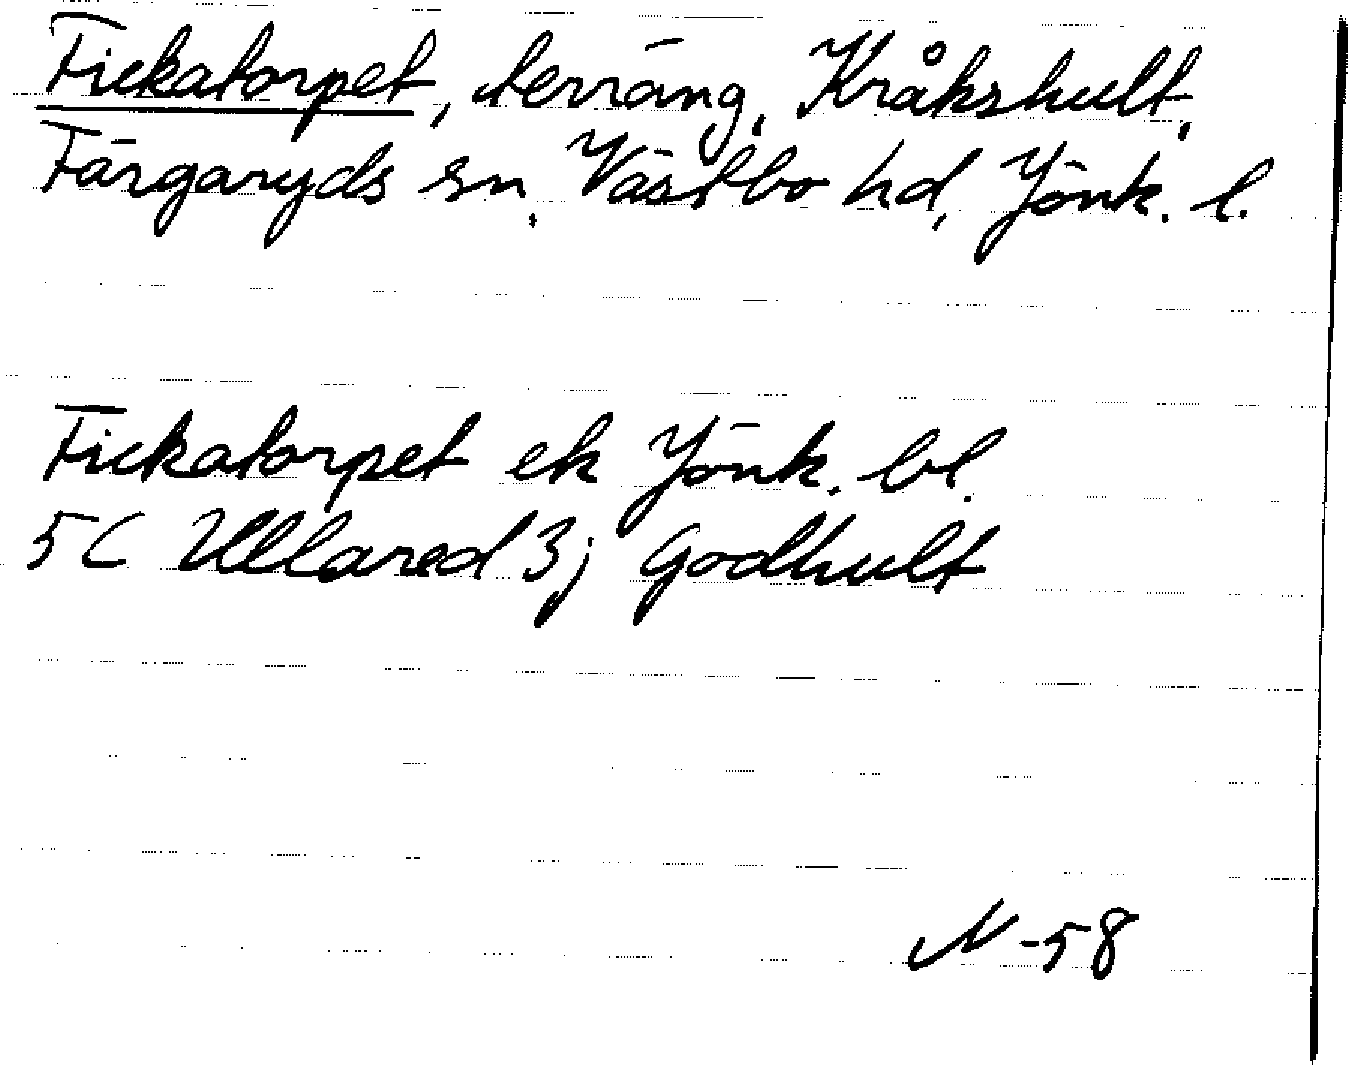 Fickatorpet, terräng, Kråkshult,
Färgaryds sn, Västbo hd, Jönk. l.
Fickatorpet ek Jönk. bl.
5C Ullared 3j Godhult
N -58